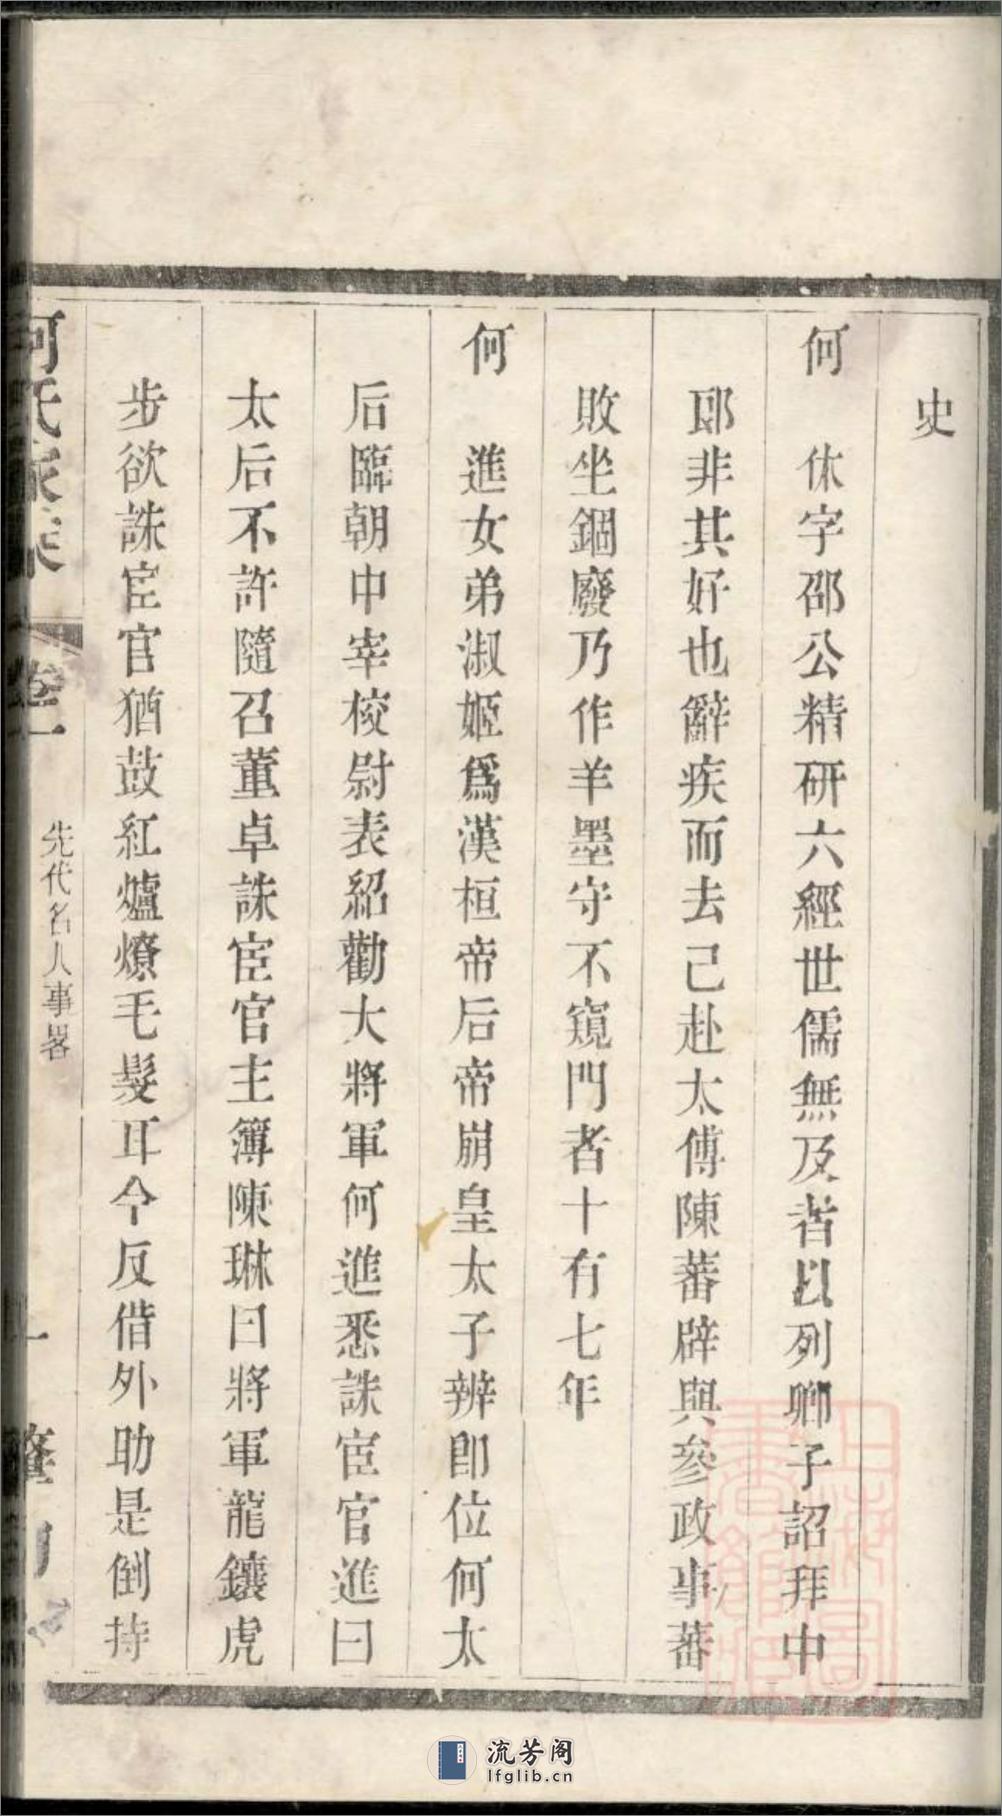 史
何　休字邵公精研六經世儒無及者以列卿子詔拜中
郎非其好也辭疾而去己赴太傅陳蕃辟與參政事蕃
敗坐錮廢乃作羊墨守不窺門者十有七年
何　進女弟淑姬爲漢桓帝后帝崩皇太子辨卽位何太
后臨朝中宰校尉表紹勸大將軍何進悉誅宦官進曰
太后不許隨召董卓誅宦官主簿陳琳曰將軍龍鑲虎
步欲誅宦官猶鼓紅爐燎毛髮耳今反借外助是倒持
何氏家乘
卷一
先代名人事畧
一
上海圖書館藏
流芳阁
lfglib.cn